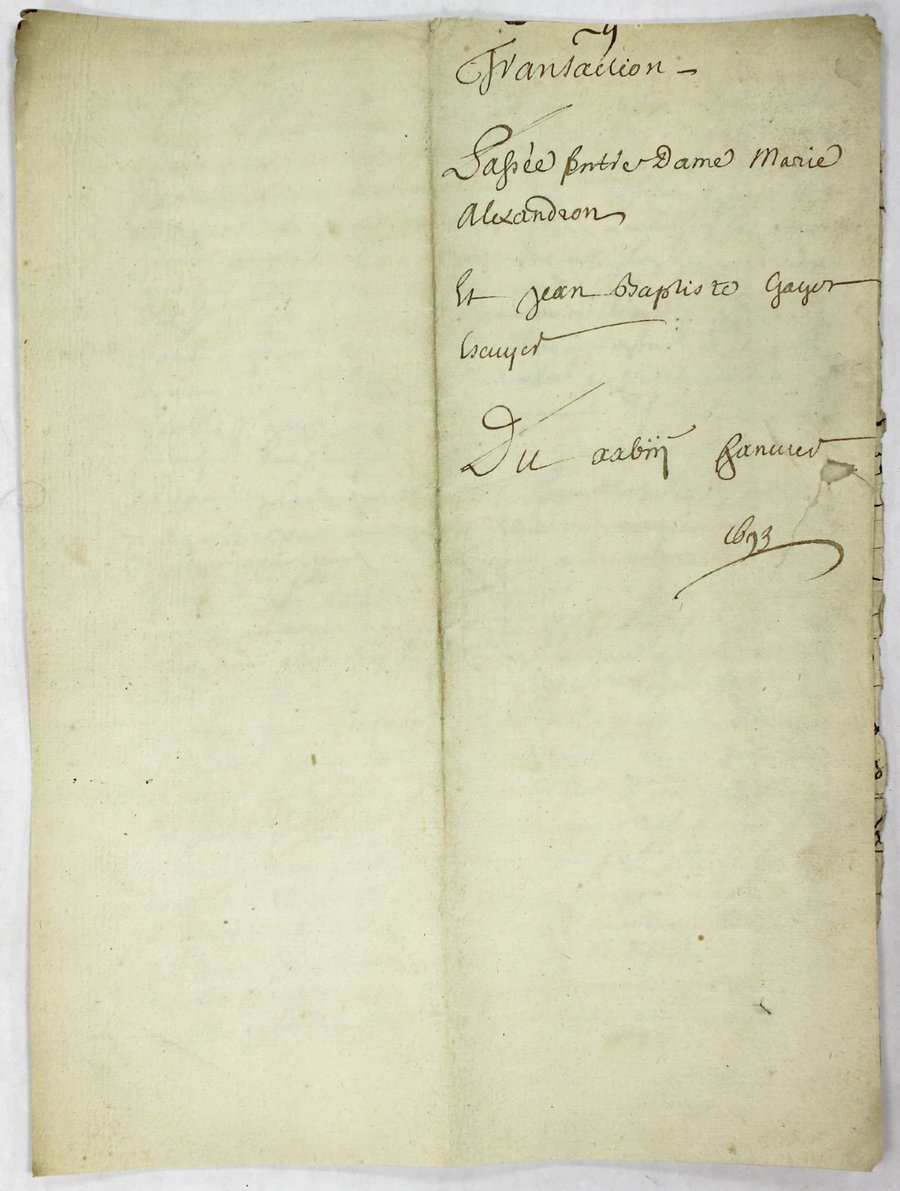 Transaction -
Passée Entre Dame Marie
Alexandron
Et Jean Baptiste Gayot
Escuyer
Du xxviij Janvier
1693